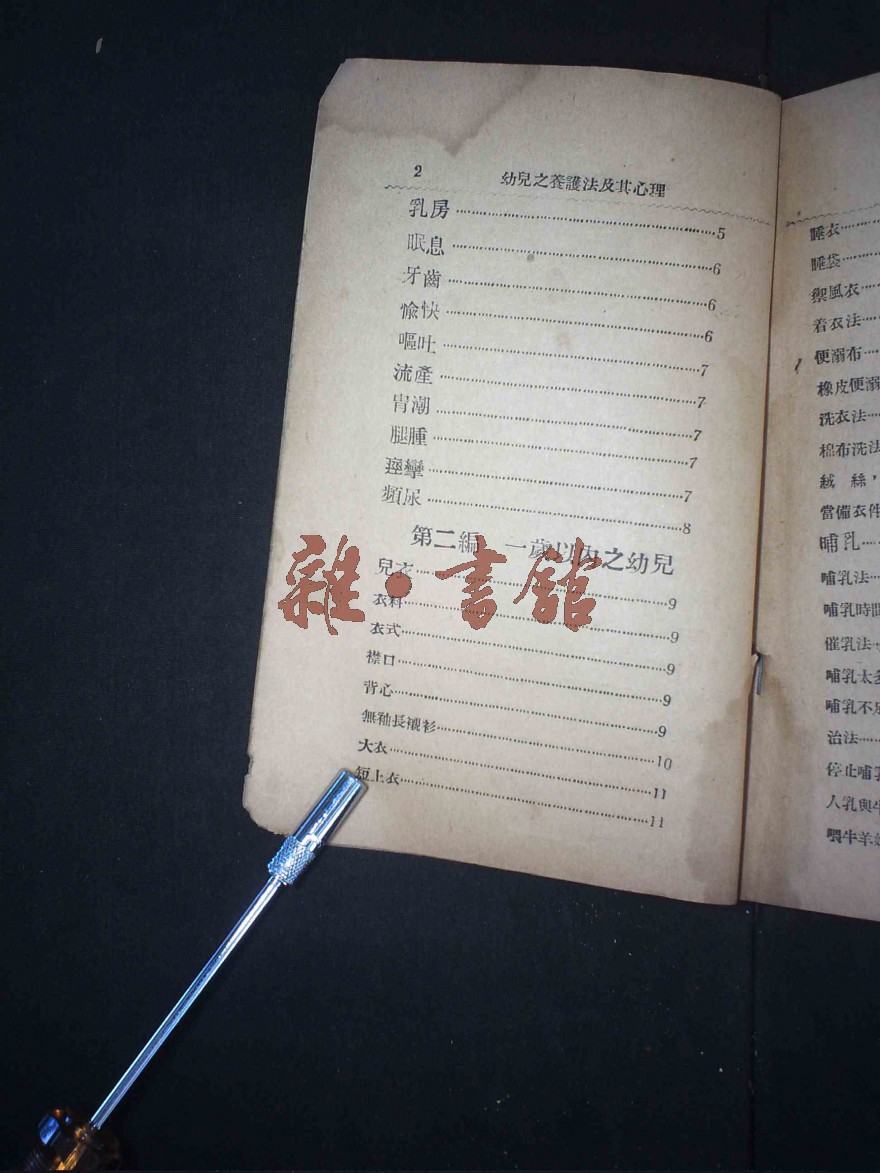 2 幼兒之養護法及其心理
乳房……5
眠息……6
牙齒……6
愉快……6
嘔吐……7
流產……7
胃潮……7
腿腫……7
痙攣……7
頻尿……8
第二編 一歲以內之幼兒
兒衣……9
衣料……9
衣式……9
襟口……9
背心……9
無袖長襯衫……10
大衣……11
短上衣……11
雜·書館
睡衣……
睡袋……
禦風衣……
着衣法……
便溺布……
橡皮便溺
洗衣法……
棉布洗法
絨 絲，
當備衣件
哺乳……
哺乳法……
哺乳時間
催乳法……
哺乳太多
哺乳不足
治法……
停止哺乳
人乳與牛
喂牛羊